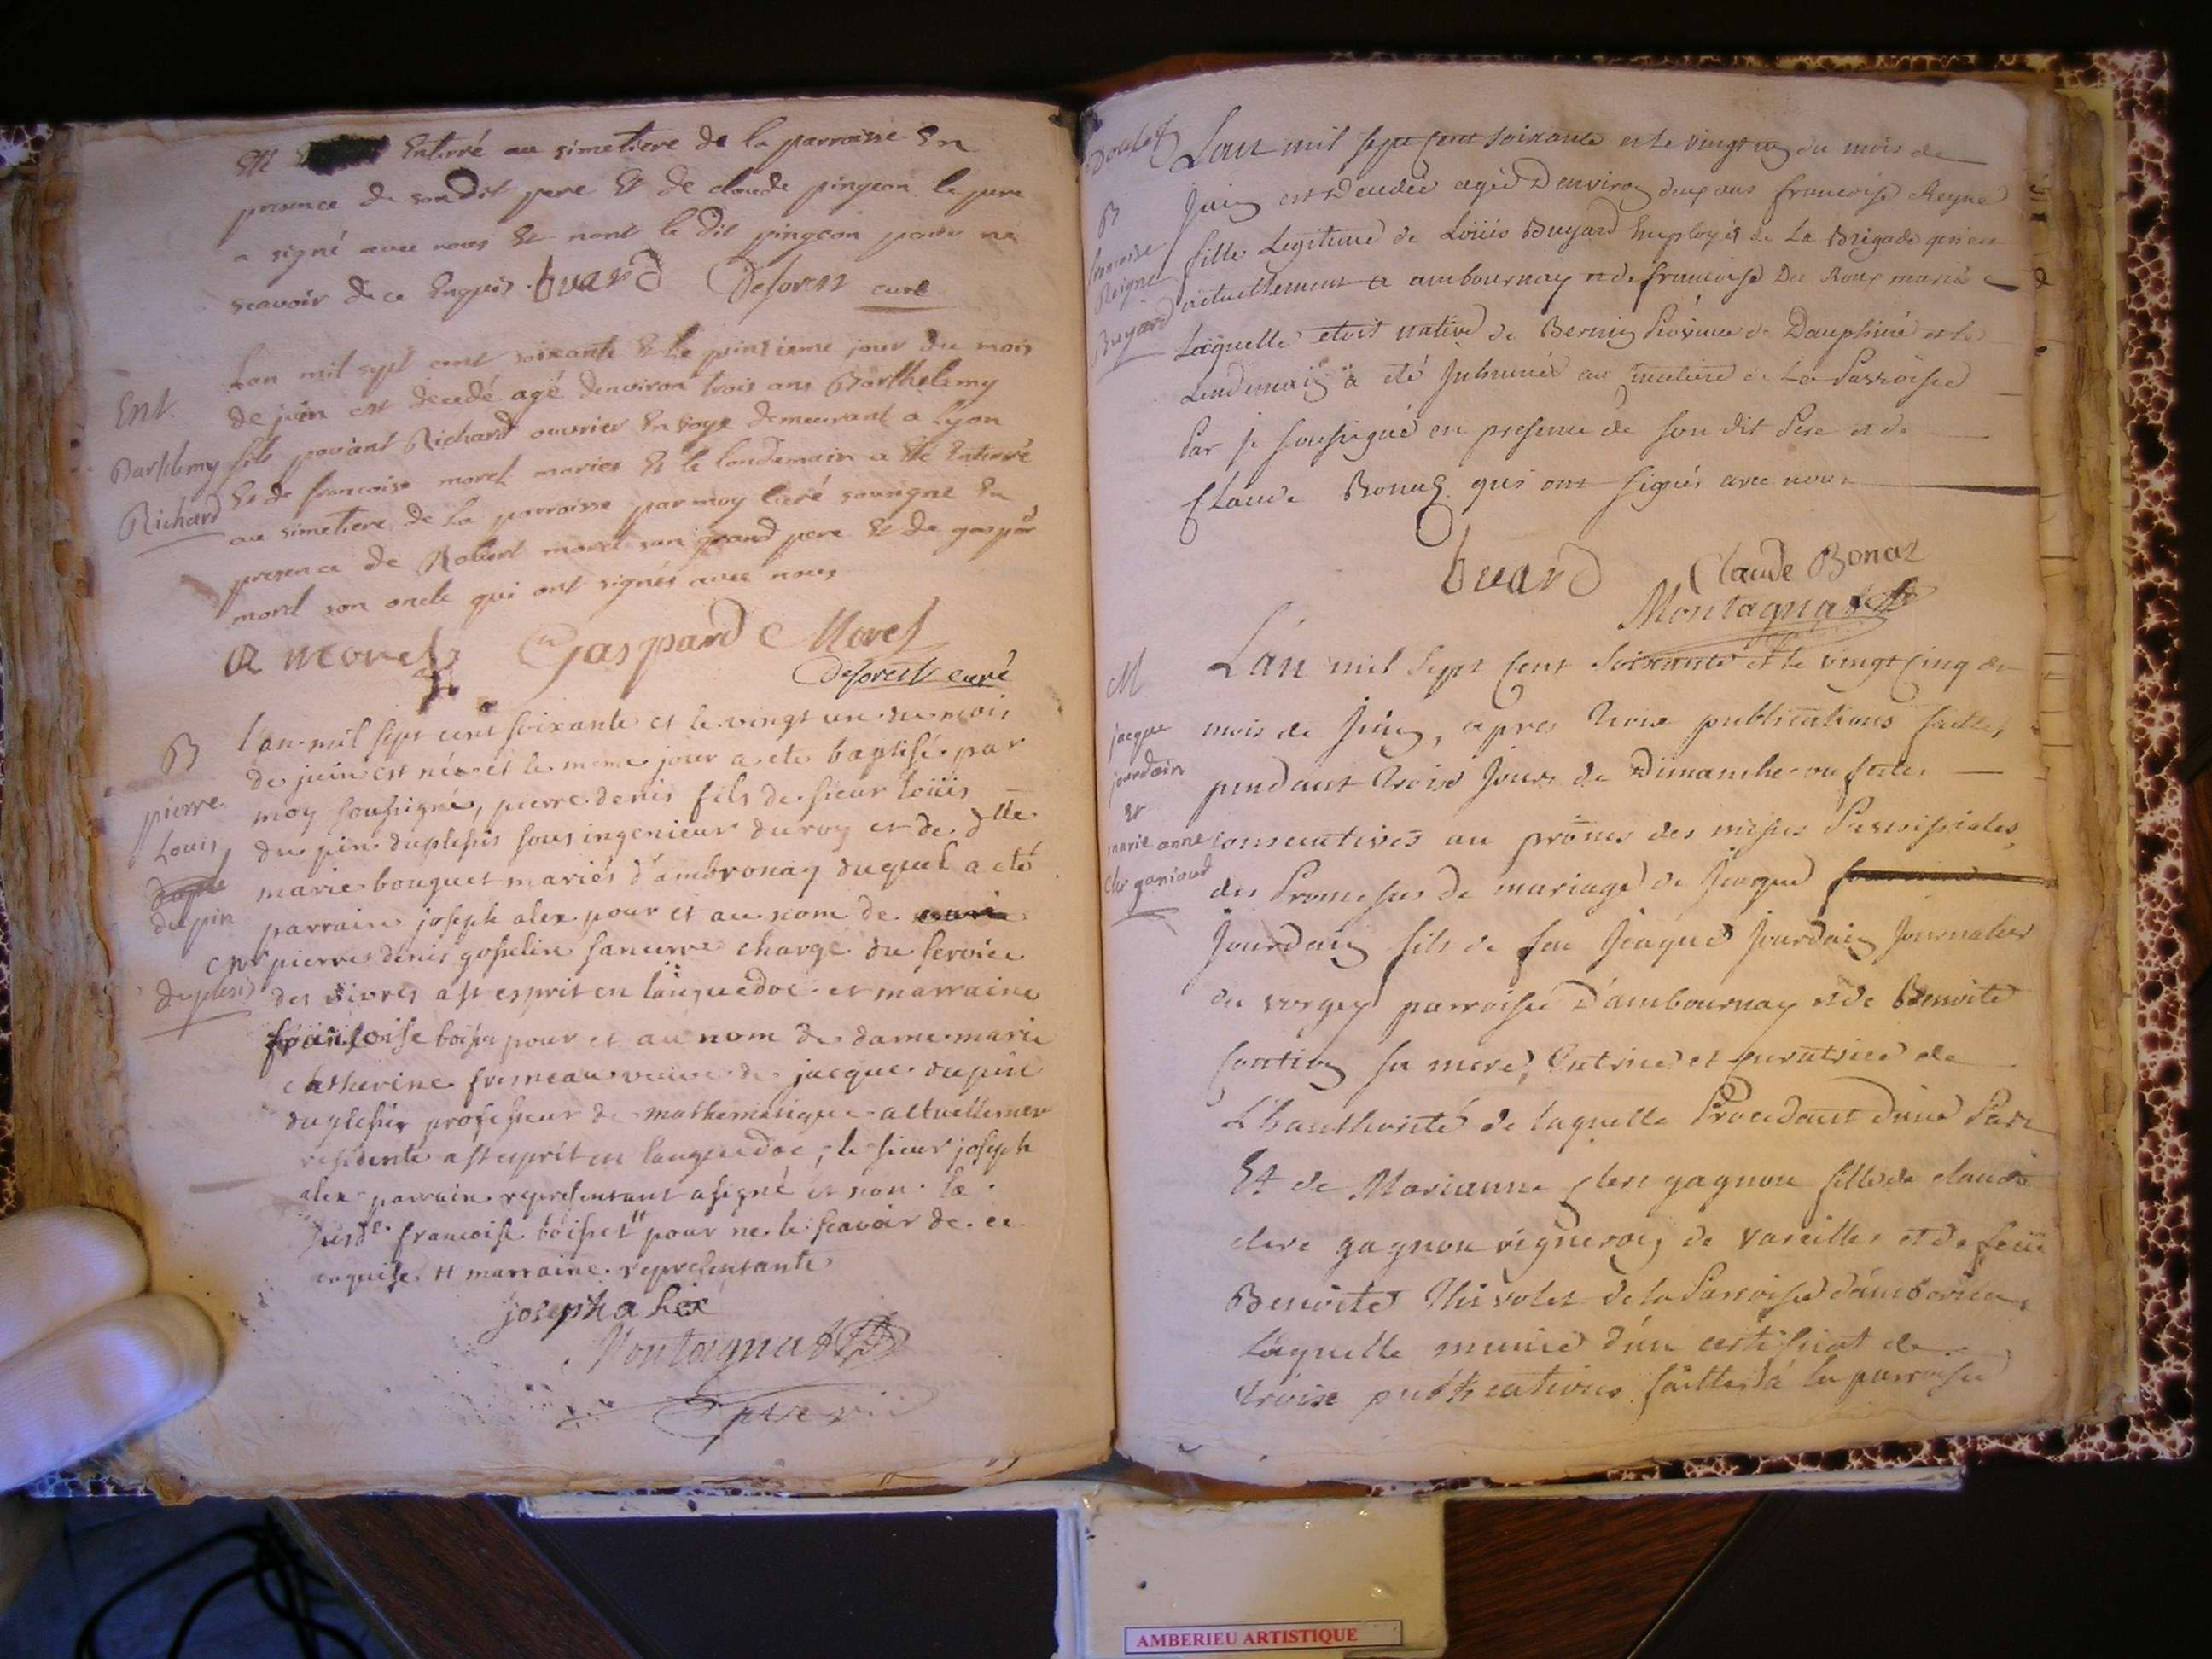 Enterré au simetiere de la parroisse En
presence de son dit pere Et de claude pingeon le pere
a signé avec nous Et nont le dit pingeon pour ne
scavoir de ce Enquis. buard Deforest curé
Ent.
Barthlemy
Richard
Lan mil sept cent soixante Et Le quinsieme jour du mois
de juin est decedé agé denviron trois ans Barthelemy
fils Richard ouvrier En soye demeurant a Lyon
Et de francoise morel maries Et le landemain a Eté Enterré
au simetiere de La parroisse par moy curé sousigne En
presence de Robert morel son grand pere Et de gaspar
morel son oncle qui ont signés avec nous
R morel Gaspard Morel
Deforest curé
B
pierre
Louis
dupin
duplesis
l'an mil sept cent soixante et le vingt un du mois
de juin est né et le meme jour a eté baptisé par
moy soussigné, pierre denis fils de sieur loüis
du pin duplessis sous ingenieur du roy et de dlle
marie bouquet mariés d'ambronay duquel a eté
parrain joseph alex pour et au nom de
pierre denis gosselin chargé du service
des vivres a st esprit en languedoc et marraine
françoise pour et au nom de dame marie
catherine veuve de jacque dupin
duplessis professeur de mathematique actuellement
residente a st esprit en languedoc, le sieur joseph
alex parrain representant a signé et non la
susde francoise boisset pour ne le scavoir de ce
enquise marraine representante
joseph alex
Montagnat
B
francoise
Reigne
Buyard
Lan mil sept cent soixante et le vingt du mois de
Juin est decedée agée D'environ deux ans francoise Reyne
fille Legitime de Loüis Buyard Employé de La Brigade
actuellement a ambournay et de francoise Du Roux mariés
Laquelle etoit native de Bernin Province de Dauphiné et le
Lendemain a été Inhumée au cimetiere de La Parroisse
Par je soussigné en presence de son dit Pere et de
Claude Bonaz qui ont signés avec nous
buard Claude Bonaz
Montagnat
M
jacque
jourdain
Et
marie anne
cler ganioud
L'an mil sept cent soixante et le vingt cinq du
mois de Juin, apres trois publications faittes
pendant trois Jours de Dimanche ou festes
consecutives au prônes des messes Parroissiales
des Promesses de mariage de Jacque
Jourdain fils de feu Jacque Jourdain Journalier
du vorgey parroisse D'ambournay et de Benoite
sa mere, tutrice et curatrice de
L'hauthorité de laquelle Procedant d'une Part
Et de Marianne clerc gagnon fille de claude
clerc gagnon vigneron de vareilles et de feüe
Benoite Thivolet de la Parroisse d'amberieu
Laquelle munie d'un certificat de
trois publications faittes à la parroisse
AMBERIEU ARTISTIQUE